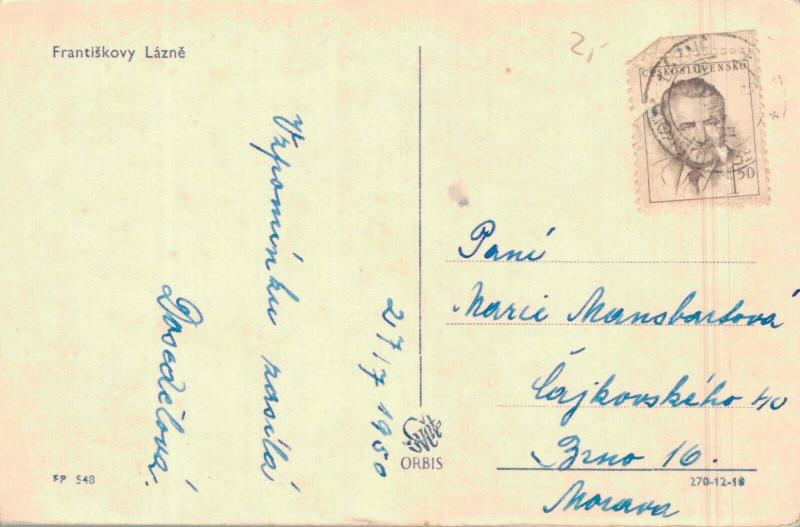 Františkovy Lázně
2,-
ČESKOSLOVENSKO
1.50
Vzpomínku zasílá
Dosedělová.
27/7 1950
Paní
Marie Mansbartová
Čajkovského 40
Brno 16.
Morava
ORBIS
FP 548
270-12-18